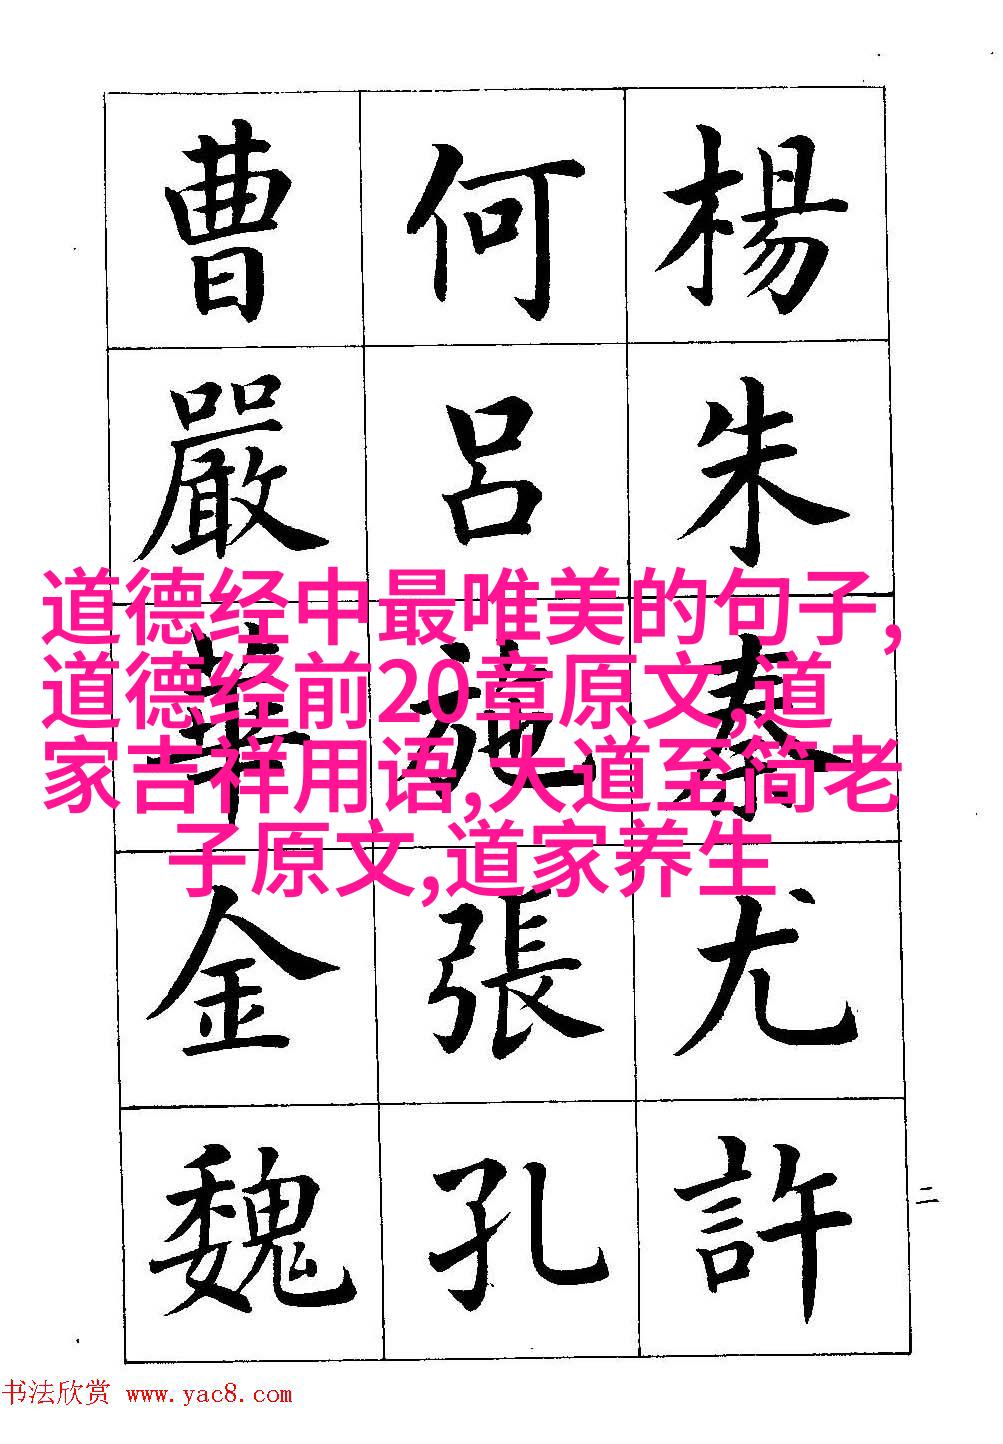 楊朱秦尤許
何呂施張孔
曹嚴華金魏
二
道德经中最唯美的句子,
道德经前20章原文,道
家吉祥用语,大道至简老
子原文,道家养生
书法欣赏 www.yac8.com